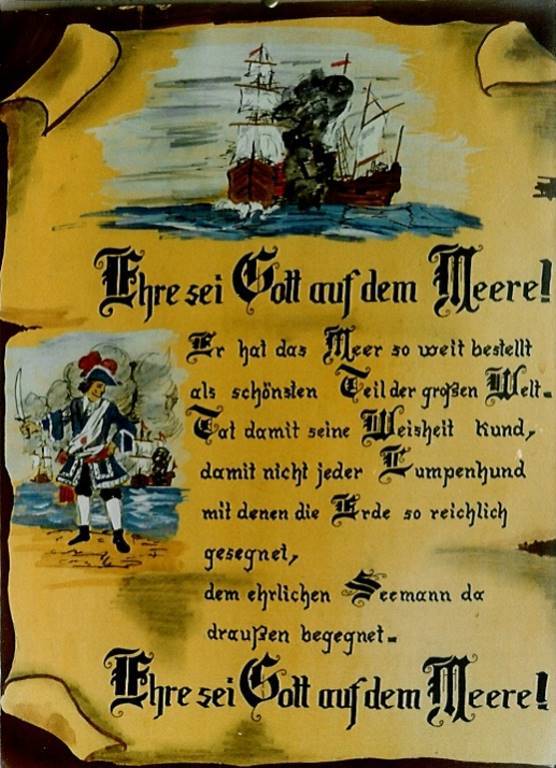 Ehre sei Gott auf dem Meere!
Er hat das Meer so weit bestellt
als schönsten Teil der großen Welt.
Tat damit seine Weisheit kund,
damit nicht jeder Lumpenhund
mit denen die Erde so reichlich
gesegnet,
dem ehrlichen Seemann da
draußen begegnet.
Ehre sei Gott auf dem Meere!